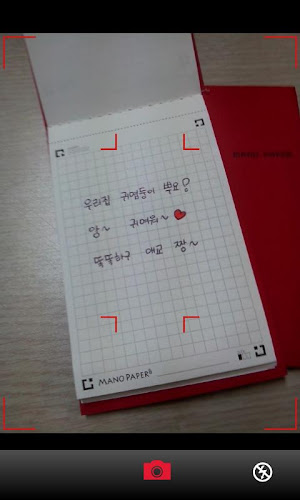 우리집 귀염둥이 뿌요?
앙~ 귀여워~
똑똑하구 애교 짱~
MANO PAPER
MANO PAPER